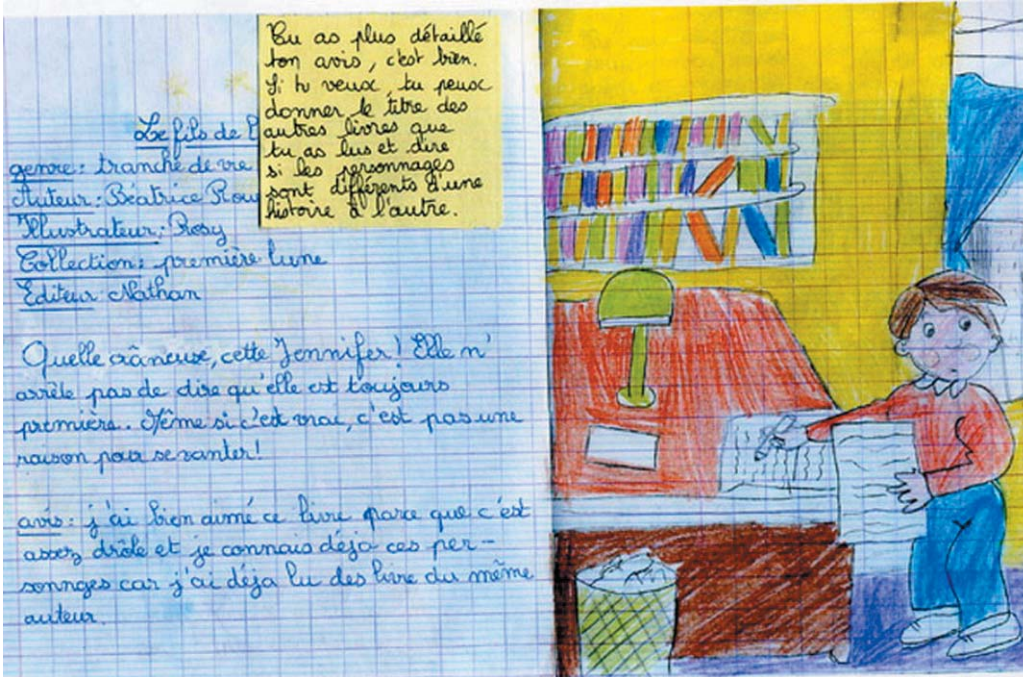 Tu as plus détaillé
ton avis, c'est bien.
Si tu veux, tu peux
donner le titre des
autres livres que
tu as lus et dire
si les personnages
sont différents d'une
histoire à l'autre.
Le fils de
genre : tranche de vie
Auteur : Béatrice Rou
Illustrateur : Rosy
Collection : première lune
Editeur Nathan
Quelle crâneuse, cette Jennifer ! Elle n'
arrête pas de dire qu'elle est toujours
première. Même si c'est vrai, c'est pas une
raison pour se vanter !
avis : j'ai bien aimé ce livre parce que c'est
assez drôle et je connais déja ces per-
sonnges car j'ai déja lu des livre du même
auteur.